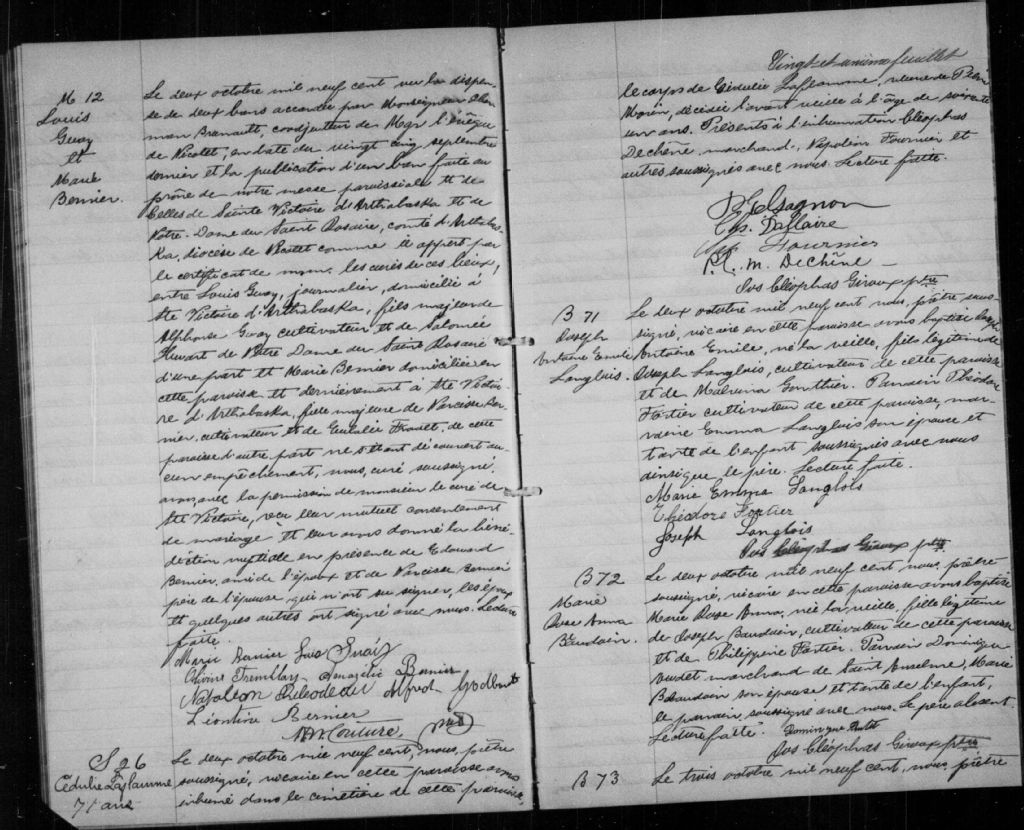 M 12
Louis
Guay
et
Marie
Bernier.
Le deux octobre mil neuf cent vu la dispen-
se de deux bans accordée par Monseigneur Her-
man Brunault, coadjuteur de Mgr l'évêque
de Nicolet, en date du vingt cinq septembre
dernier et la publication d'un ban faite au
prône de notre messe paroissiale et de
celles de Sainte Victoire d'Arthabaska et de
Notre-Dame du Saint Rosaire, comté d'Arthabas-
ka, diocèse de Nicolet comme il appert par
le certificat de messrs. les curés de ces lieux,
entre Louis Guay, journalier, domicilié à
Ste Victoire d'Arthabaska, fils majeur de
Alphonse Guay cultivateur et de Salomée
Huart de Notre Dame du Saint Rosaire
d'une part et Marie Bernier domiciliée en
cette paroisse et dernièrement à Ste Victoi-
re d'Arthabaska, fille majeure de Narcisse Ber-
nier, cultivateur et de Eulalie de cette
paroisse d'autre part ne s'étant découvert au-
cun empêchement, nous, curé soussigné,
avons, avec la permission de monsieur le curé de
Ste Victoire, reçu leur mutuel consentement
de mariage et leur avons donné la béné-
diction nuptiale en présence de Edouard
Bernier, ami de l'époux et de Narcisse Bernier
père de l'épouse, qui n'ont su signer, les époux
et quelques autres ont signé avec nous. Lecture
faite.
Marie Bernier Louis Guay
Olivine Tremblay Bernier
Napoléon Alfred Godbout
Léontine Bernier
Couture, ptre
S 26
Cédulie Laflamme
71 ans
Le deux octobre mil neuf cent, nous, prêtre
soussigné, vicaire en cette paroisse avons
inhumé dans le cimetière de cette paroisse,
Vingt-et-unième feuillet
le corps de Cédulie Laflamme, veuve de
Morin, décédée l'avant veille à l'âge de soixante
onze ans. Présents à l'inhumation Cléophas
Dechêne, marchand, Napoléon Fournier et
autres soussignés avec nous. Lecture faite.
Gagnon
Dallaire
Fournier
P. C. M. Dechêne
Jos Cléophas Giroux ptre
B 71
Joseph
Antoine Emile
Langlois.
Le deux octobre mil neuf cent nous, prêtre sous-
signé, vicaire en cette paroisse avons baptisé Joseph
Antoine Emile, né la veille, fils légitime de
Joseph Langlois, cultivateur de cette paroisse
et de Malvina Gauthier. Parrain Théodore
Fortier cultivateur de cette paroisse, mar-
raine Emma Langlois son épouse et
tante de l'enfant soussignés avec nous
ainsi que le père. Lecture faite.
Marie Emma Langlois
Théodore Fortier
Joseph Langlois
Jos Cléophas Giroux ptre
B 72
Marie
Rose Anna
Beaudoin.
Le deux octobre mil neuf cent, nous, prêtre
soussigné, vicaire en cette paroisse avons baptisé
Marie Rose Anna, née la veille, fille légitime
de Joseph Beaudoin, cultivateur de cette paroisse
et de Philippine Fortier. Parrain Dominique
marchand de Saint Anselme, Marie
Beaudoin son épouse et tante de l'enfant,
le parrain, soussigné avec nous. Le père absent.
Lecture faite. Dominique
Jos Cléophas Giroux ptre
B 73
Le trois octobre mil neuf cent, nous, prêtre